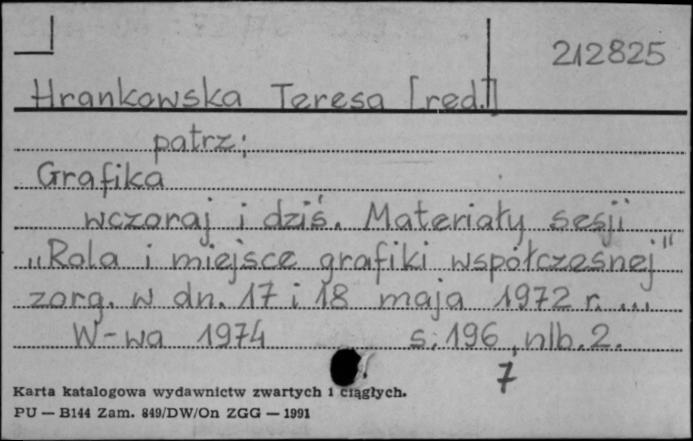 212825
Hrankowska Teresa [red.]
patrz;
Grafika
wczoraj i dziś. Materiały sesji
„Rola i miejsce grafiki współczesnej"
zorg. w dn. 17 i 18 maja 1972 r. ...
W-wa 1974 s. 196, nlb. 2.
7
Karta katalogowa wydawnictw zwartych i ciągłych.
PU — B144 Zam. 849/DW/On ZGG — 1991